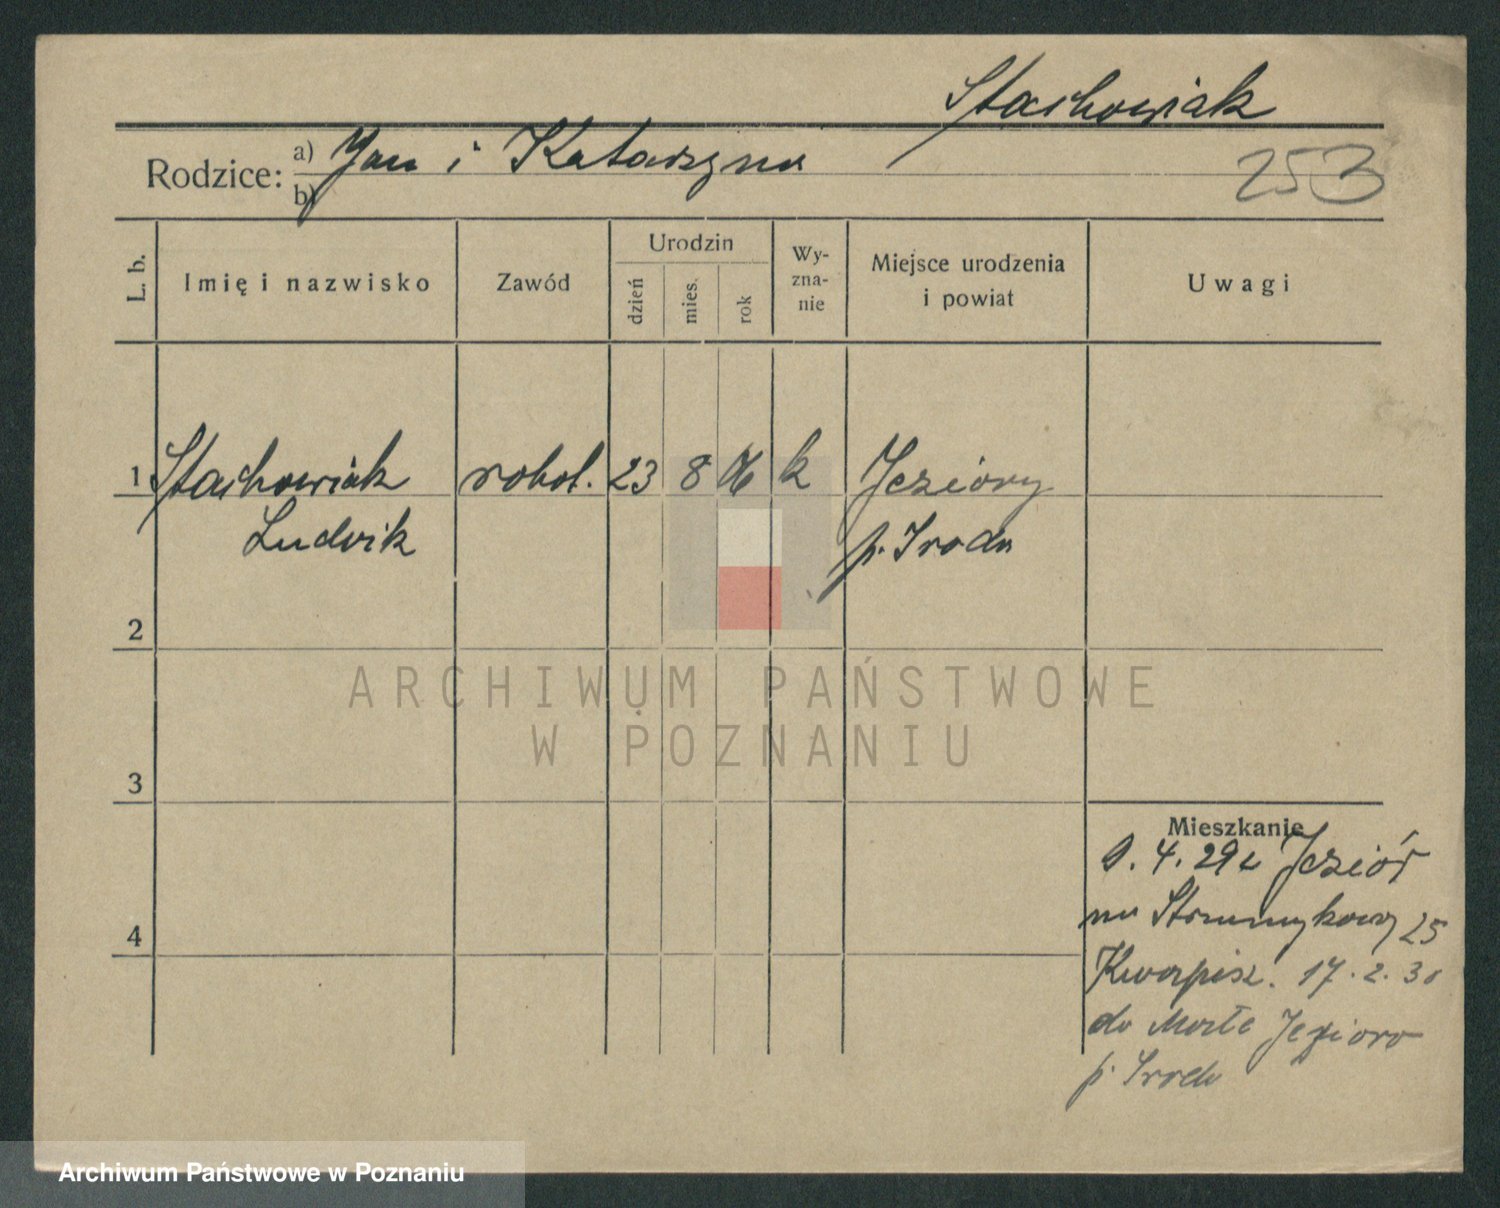 Stachowiak
Rodzice: a) Jan i Katarzyna
b)
253
L. b.
Imię i nazwisko
Zawód
Urodzin
dzień
mies.
rok
Wy-
zna-
nie
Miejsce urodzenia
i powiat
Uwagi
1 Stachowiak robot. 23 8 06 k Jeziory
Ludwik p. Środa
2
3
4
Mieszkanie
4. 29 z Jeziór
na Strumykową 25
17. 2. 31
do Małe Jezioro
p. Środa
ARCHIWUM PAŃSTWOWE
W POZNANIU
Archiwum Państwowe w Poznaniu